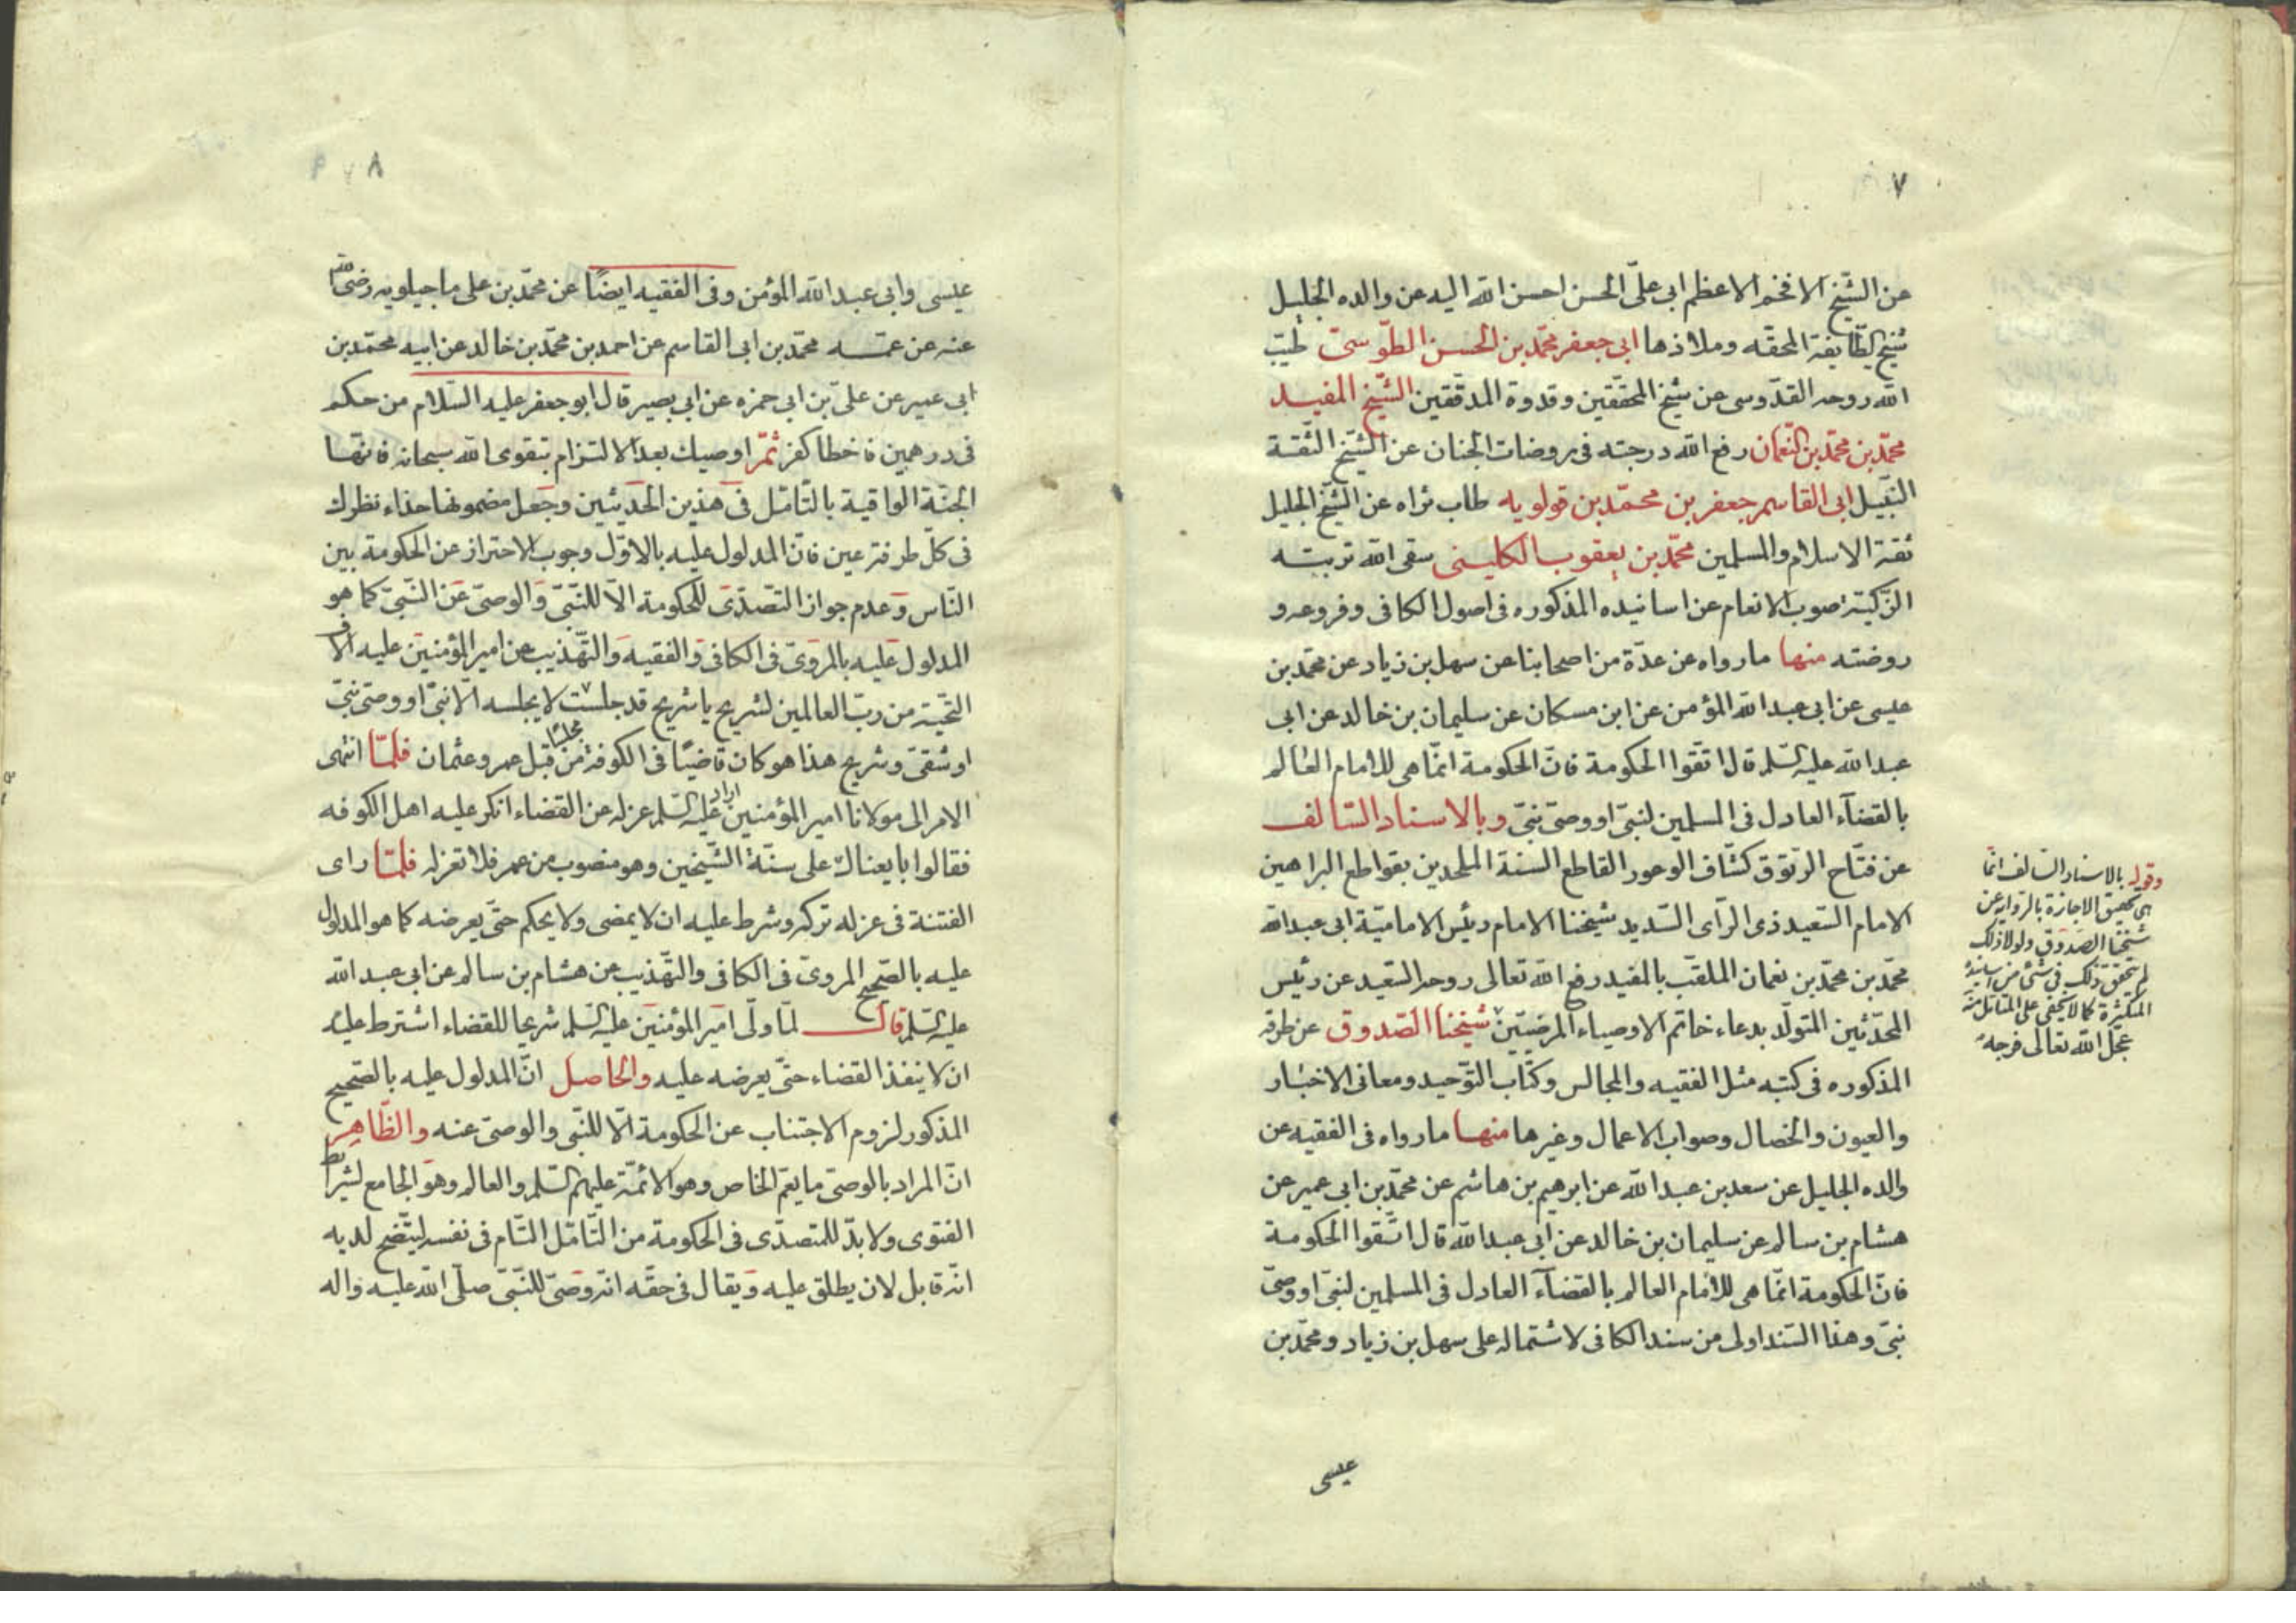 ٧
عن الشّيخ الافخم الاعظم ابى علىّ الحسن احسن الله اليه عن والده الجليل
شيخ الطّايفة المحقه وملاذها ابى جعفر محمّد بن الحسن الطّوسىّ طيّب
الله روحه القدّوسى عن شيخ المحقّقين وقدوة المدقّقين الشّيخ المفيد
محمّد بن محمّد بن النّعمان رفع الله درجته فى روضات الجنان عن الشّيخ الثّقة
النّبيل ابى القاسم جعفر بن محمّد بن قولويه طاب ثراه عن الشّيخ الجليل
ثقة الاسلام والمسلمين محمّد بن يعقوب الكلينى سقى الله تربته
الزّكيّة صوب الانعام عن اسانيده المذكوره فى اصول الكافى وفروعه و
روضته منها مارواه عن عدّة من اصحابنا عن سهل بن زياد عن محمّد بن
عيسى عن ابى عبد الله المؤمن عن ابن مسكان عن سليمان بن خالد عن ابى
عبد الله عليه السّلم قال اتّقوا الحكومة فانّ الحكومة انّما هى للامام العالم
بالقضآء العادل فى المسلمين لنبىّ او وصىّ نبىّ وبالاسناد السّالف
عن فتّاح الرّتوق كشّاف الوعور القاطع السنة الملحدين بقواطع البراهين
الامام السّعيد ذى الرّاى السّديد شيخنا الامام رئيس الاماميّة ابى عبد الله
محمّد بن محمّد بن نعمان الملقّب بالمفيد رفع الله تعالى روحه السّعيد عن رئيس
المحدّثين المتولّد بدعاء خاتم الاوصياء المرضيّين شيخنا الصّدوق عن طرقه
المذكوره فى كتبه مثل الفقيه والمجالس وكتاب التّوحيد ومعانى الاخبار
والعيون والخصال وصواب الاعمال وغيرها منها مارواه فى الفقيه عن
والده الجليل عن سعد بن عبد الله عن ابرهيم بن هاشم عن محمّد بن ابى عمير عن
هشام بن سالم عن سليمان بن خالد عن ابى عبد الله قال اتّقوا الحكومة
فانّ الحكومة انّما هى للامام العالم بالقضآء العادل فى المسلمين لنبىّ او وصىّ
نبىّ وهذا السّند اولى من سند الكافى لاشتماله على سهل بن زياد ومحمّد بن
عيسى
وقوله بالاسناد السّالف انّما
هى تحقيق الاجازة بالرّواية عن
شيخنا الصّدوق ولولا ذلك
لم يتحقّق ذلك فى شئ من اسانيده
المتكثّرة كما لا يخفى على المتأمّل منه
عجّل الله تعالى فرجه
٨
عيسى وابى عبد الله المؤمن وفى الفقيه ايضًا عن محمّد بن على ماجيلويه رضى الله
عنه عن عمّه محمّد بن ابى القاسم عن احمد بن محمّد بن خالد عن ابيه محمّد بن
ابى عمير عن علىّ بن ابى حمزه عن ابى بصير قال ابو جعفر عليه السّلام من حكم
فى درهمين فاخطا كفر ثمّ اوصيك بعد الالتزام بتقوى الله سبحانه فانّها
الجنّة الواقية بالتّامّل فى هذين الحديثين وجعل مضمونها حذاء نظرك
فى كلّ طرفة عين فانّ المدلول عليه بالاوّل وجوب الاحتراز عن الحكومة بين
النّاس وعدم جواز التصدّى للحكومة الّا للنّبىّ والوصىّ عن النّبىّ كما هو
المدلول عليه بالمروىّ فى الكافى والفقيه والتّهذيب عن امير المؤمنين عليه الاف
التّحيّة من ربّ العالمين لشريح يا شريح قد جلست مجلسًا لا يجلسه الّا نبىّ او وصىّ نبىّ
او شقىّ وشريح هذا هو كان قاضيًا فى الكوفة من قبل عمر وعثمان فلمّا انتهى
الامر الى مولانا امير المؤمنين عليه السّلم اراد عزله عن القضاء انكر عليه اهل الكوفه
فقالوا بايعناك على سنّة الشّيخين وهو منصوب من عمر فلا تعزله فلمّا راى
الفتنة فى عزله تركه وشرط عليه ان لا يمضى ولا يحكم حتّى يعرضه كما هو المدلول
عليه بالصّحيح المروىّ فى الكافى والتّهذيب عن هشام بن سالم عن ابى عبد الله
عليه السّلم قال لمّا ولّى امير المؤمنين عليه السّلم شريحا للقضاء اشترط عليه
ان لا ينفذ القضاء حتّى يعرضه عليه والحاصل انّ المدلول عليه بالصّحيح
المذكور لزوم الاجتناب عن الحكومة الّا للنّبى والوصىّ عنه والظّاهر
انّ المراد بالوصىّ ما يعمّ الخاص وهو الائمّة عليهم السّلم والعالم وهو الجامع لشرايط
الفتوى ولا بدّ للمتصدّى فى الحكومة من التّامّل التّام فى نفسه ليتّضح لديه
انّه قابل لان يطلق عليه ويقال فى حقّه انّه وصىّ للنّبىّ صلّى الله عليه واله